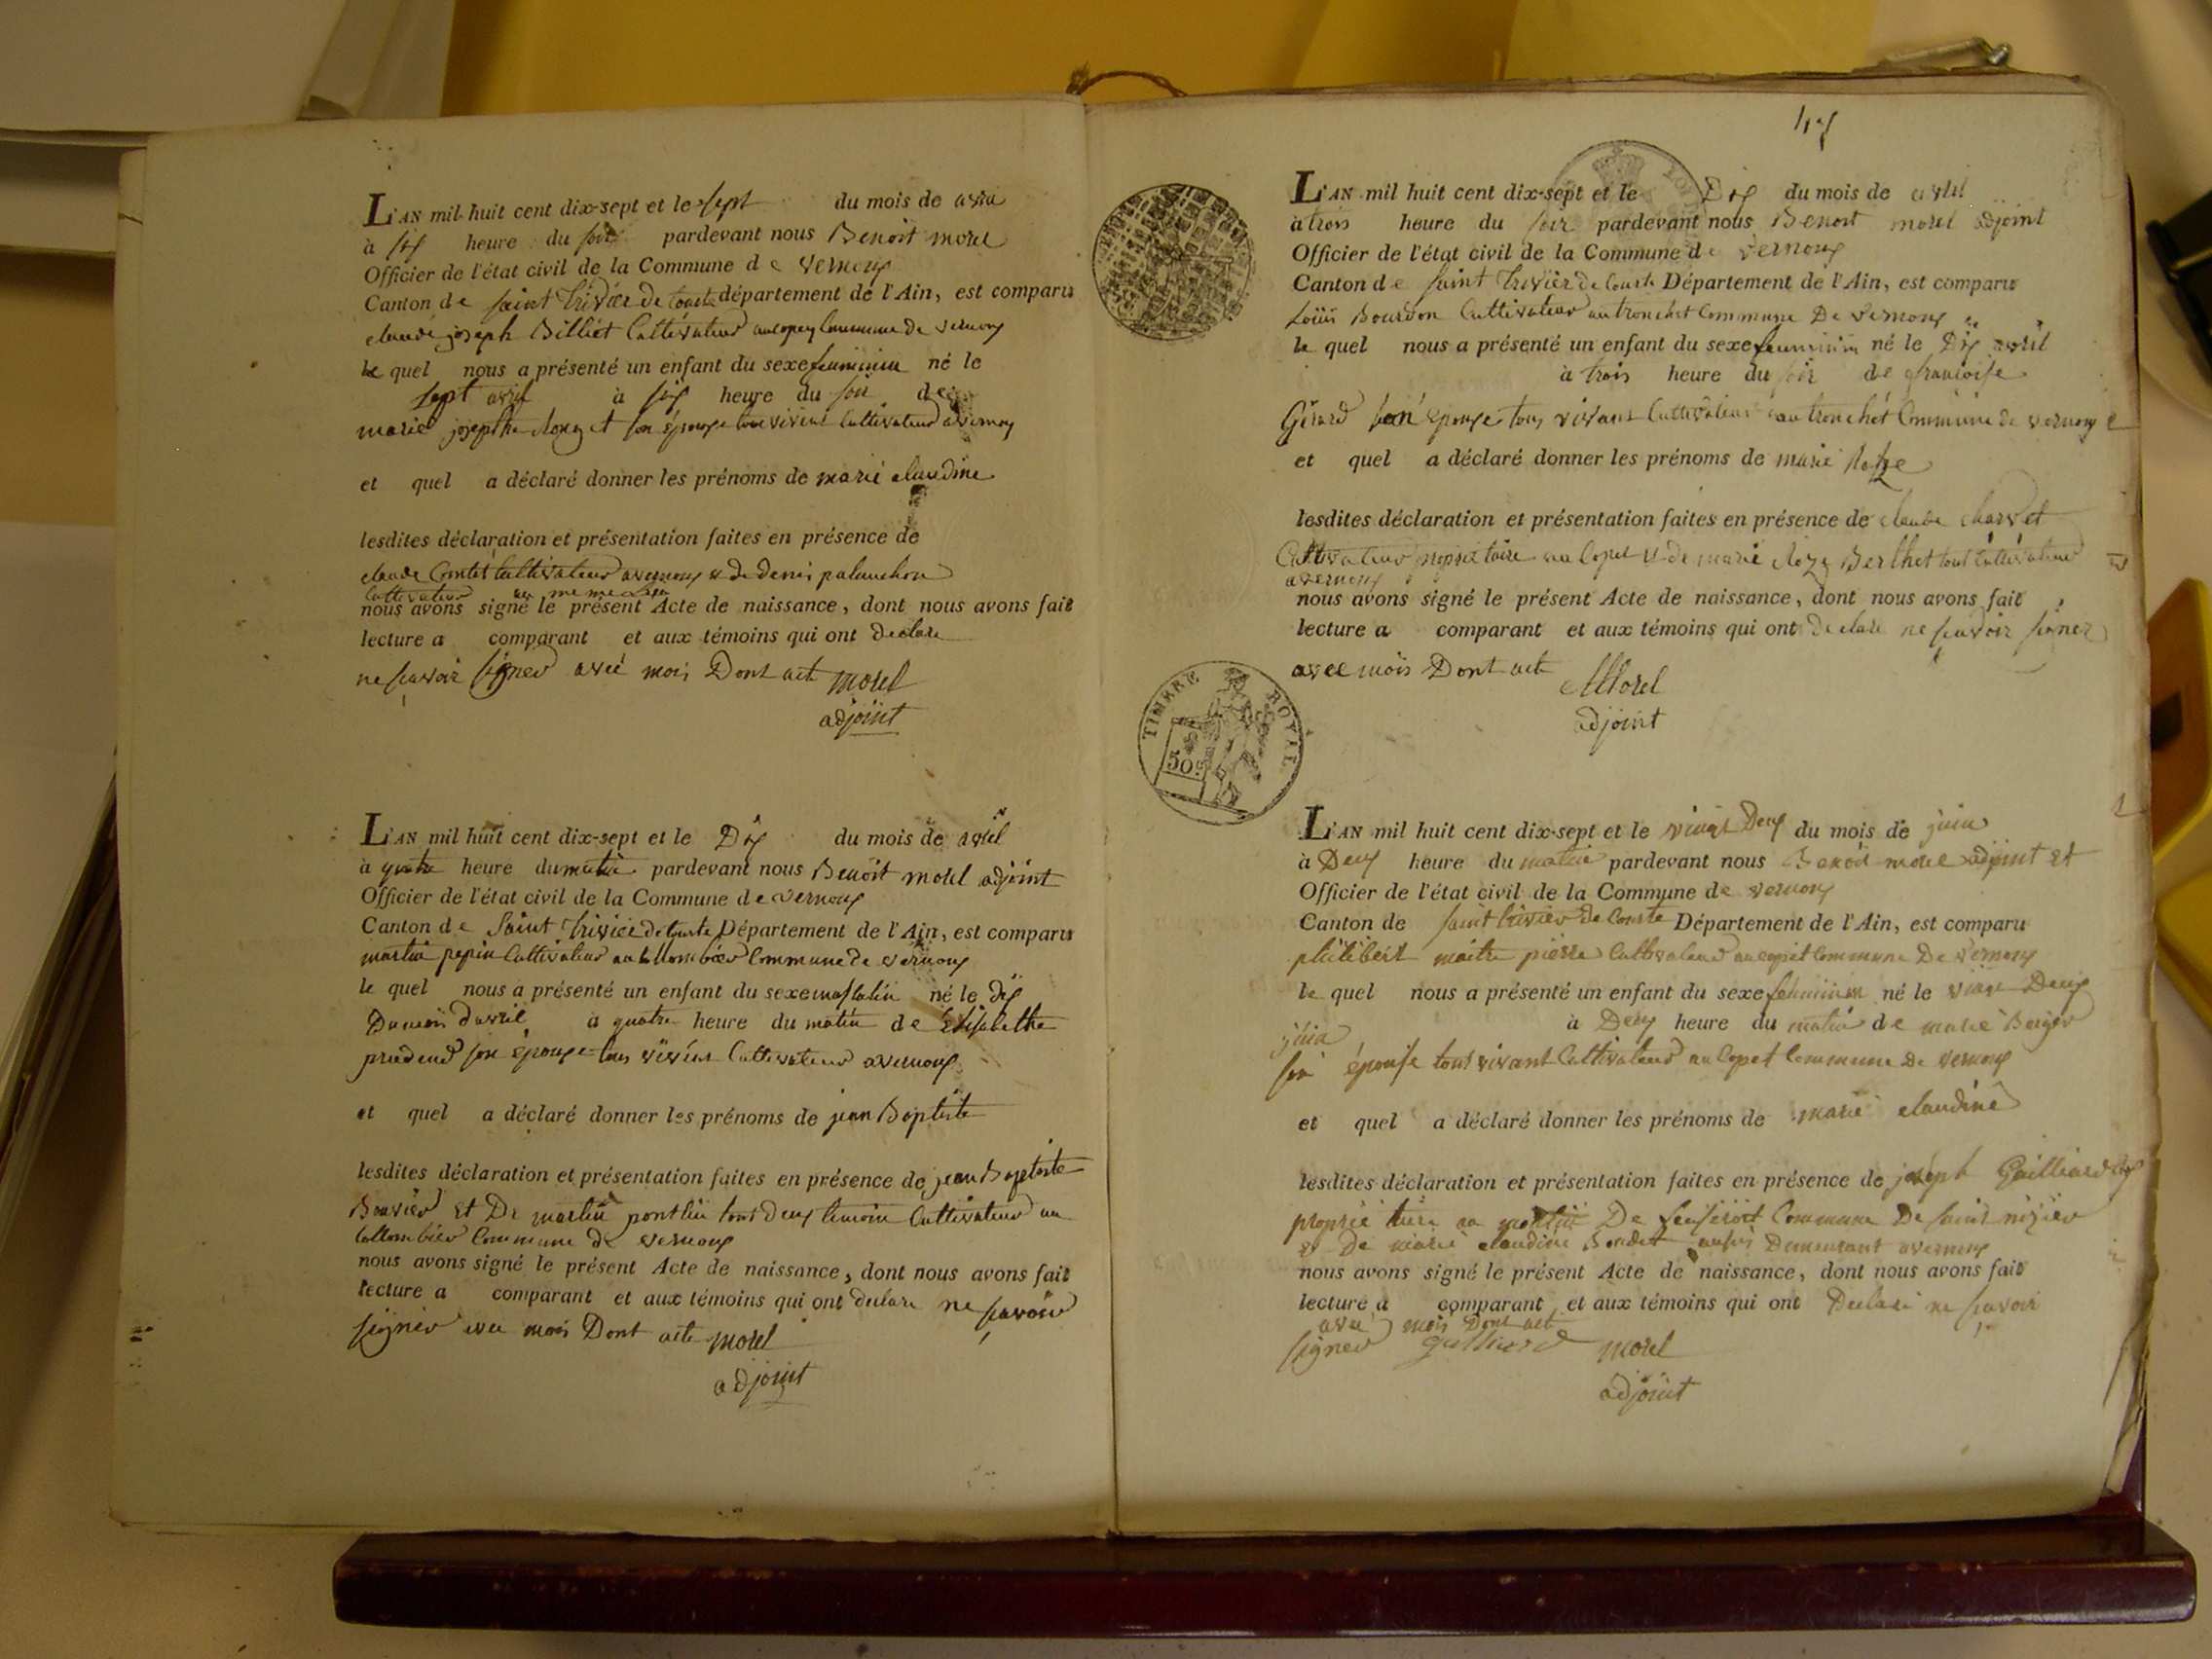 L'AN mil huit cent dix-sept et le sept du mois de avril
à six heure du soir pardevant nous Benoit morel
Officier de l'état civil de la Commune de vernoux
Canton de saint trivier de courte département de l'Ain, est comparu
claude joseph Billiet Cultivateur au copey Commune de vernoux
le quel nous a présenté un enfant du sexe feminin né le
sept avril à six heure du soir de
marie josephe son épouse tous vivent Cultivateur a vernoux
et quel a déclaré donner les prénoms de marie claudine
lesdites déclaration et présentation faites en présence de
claude Comtet Cultivateur a vernoux & de denis paluchon
Cultivateur au meme lieu
nous avons signé le présent Acte de naissance, dont nous avons fait
lecture a comparant et aux témoins qui ont declare
ne scavoir signer avec moi Dont act morel
adjoint
L'AN mil huit cent dix-sept et le Dix du mois de avril
à quatre heure du matin pardevant nous Benoit morel adjoint
Officier de l'état civil de la Commune de vernoux
Canton de Saint trivier de Courte Département de l'Ain, est comparu
martin pepin Cultivateur au Commune de vernoux
le quel nous a présenté un enfant du sexe masculin né le dix
Du mois d'avril à quatre heure du matin de Elisabethe
son épouse tous vivent Cultivateur a vernoux
et quel a déclaré donner les prénoms de jean Baptiste
lesdites déclaration et présentation faites en présence de jean Baptiste
Bouvier et De martin ponthu tous deux temoin Cultivateur au
Collombier Commune de vernoux
nous avons signé le présent Acte de naissance, dont nous avons fait
lecture a comparant et aux témoins qui ont declare ne scavoir
signer avec moi Dont acte morel
adjoint
L'AN mil huit cent dix-sept et le Dix du mois de avril
à trois heure du soir pardevant nous Benoit morel adjoint
Officier de l'état civil de la Commune de vernoux
Canton de saint trivier de Courte Département de l'Ain, est comparu
Loüis Bourdon Cultivateur au tronchet Commune De vernoux
le quel nous a présenté un enfant du sexe feminin né le Dix avril
à trois heure du soir de francoise
Girard son épouse tous vivant Cultivateur au tronchet Commune de vernoux
et quel a déclaré donner les prénoms de marie
lesdites déclaration et présentation faites en présence de claude
Cultivateur propriétaire au Copet & de marie Berthet tout Cultivateur
a vernoux
nous avons signé le présent Acte de naissance, dont nous avons fait
lecture a comparant et aux témoins qui ont declare ne scavoir signer
avec mois Dont act Morel
adjoint
TIMBRE ROYAL
50c
L'AN mil huit cent dix-sept et le vingt Deux du mois de juin
à Deux heure du matin pardevant nous Benoit morel adjoint et
Officier de l'état civil de la Commune de vernoux
Canton de saint trivier de Courte Département de l'Ain, est comparu
philibert maitre pierre Cultivateur au copet Commune De vernoux
le quel nous a présenté un enfant du sexe feminin né le vingt Deux
juin à Deux heure du matin de marie Berger
son épouse tout vivant Cultivateur au Copet Commune De vernoux
et quel a déclaré donner les prénoms de marie claudine
lesdites déclaration et présentation faites en présence de joseph Gailliard
propriétaire au De Commune De saint nizier
& De marie claudine aussi Demeurant a vernoux
nous avons signé le présent Acte de naissance, dont nous avons fait
lecture a comparant et aux témoins qui ont Declare ne scavoir
signer avec mois Dont act
morel
adjoint